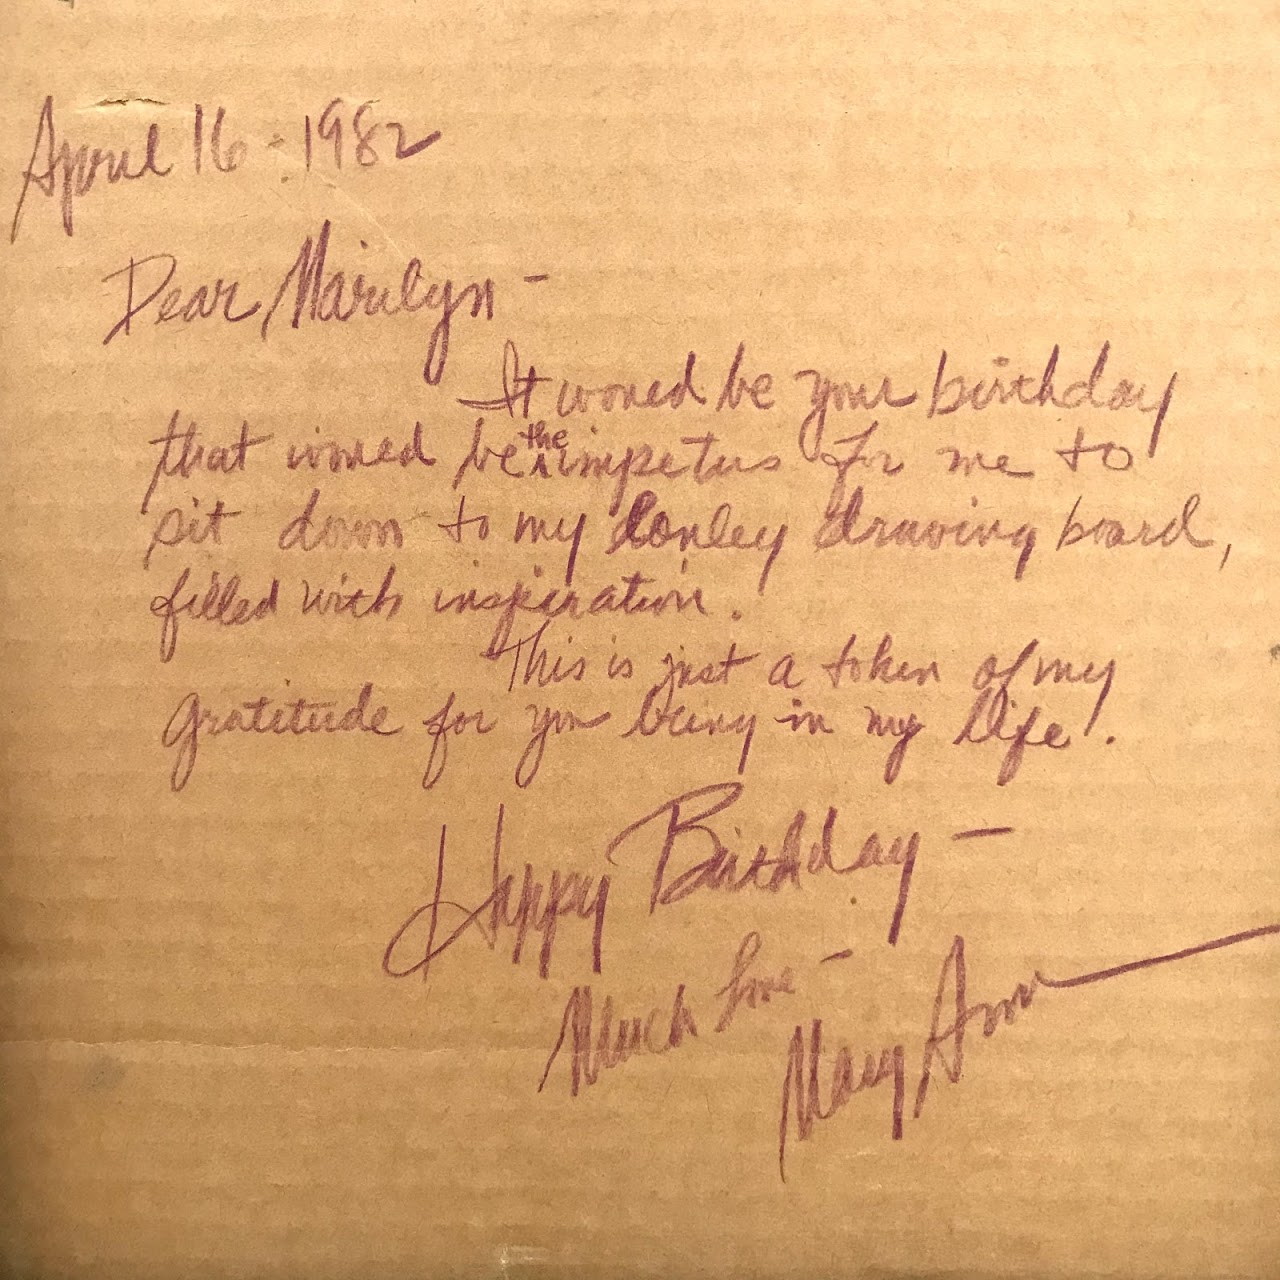 April 16 - 1982
Dear Marilyn -
It would be your birthday
that would be the impetus for me to
sit down to my lonley drawing board,
filled with inspiration.
This is just a token of my
gratitude for you being in my life.
Happy Birthday -
Much love -
Mary Ann